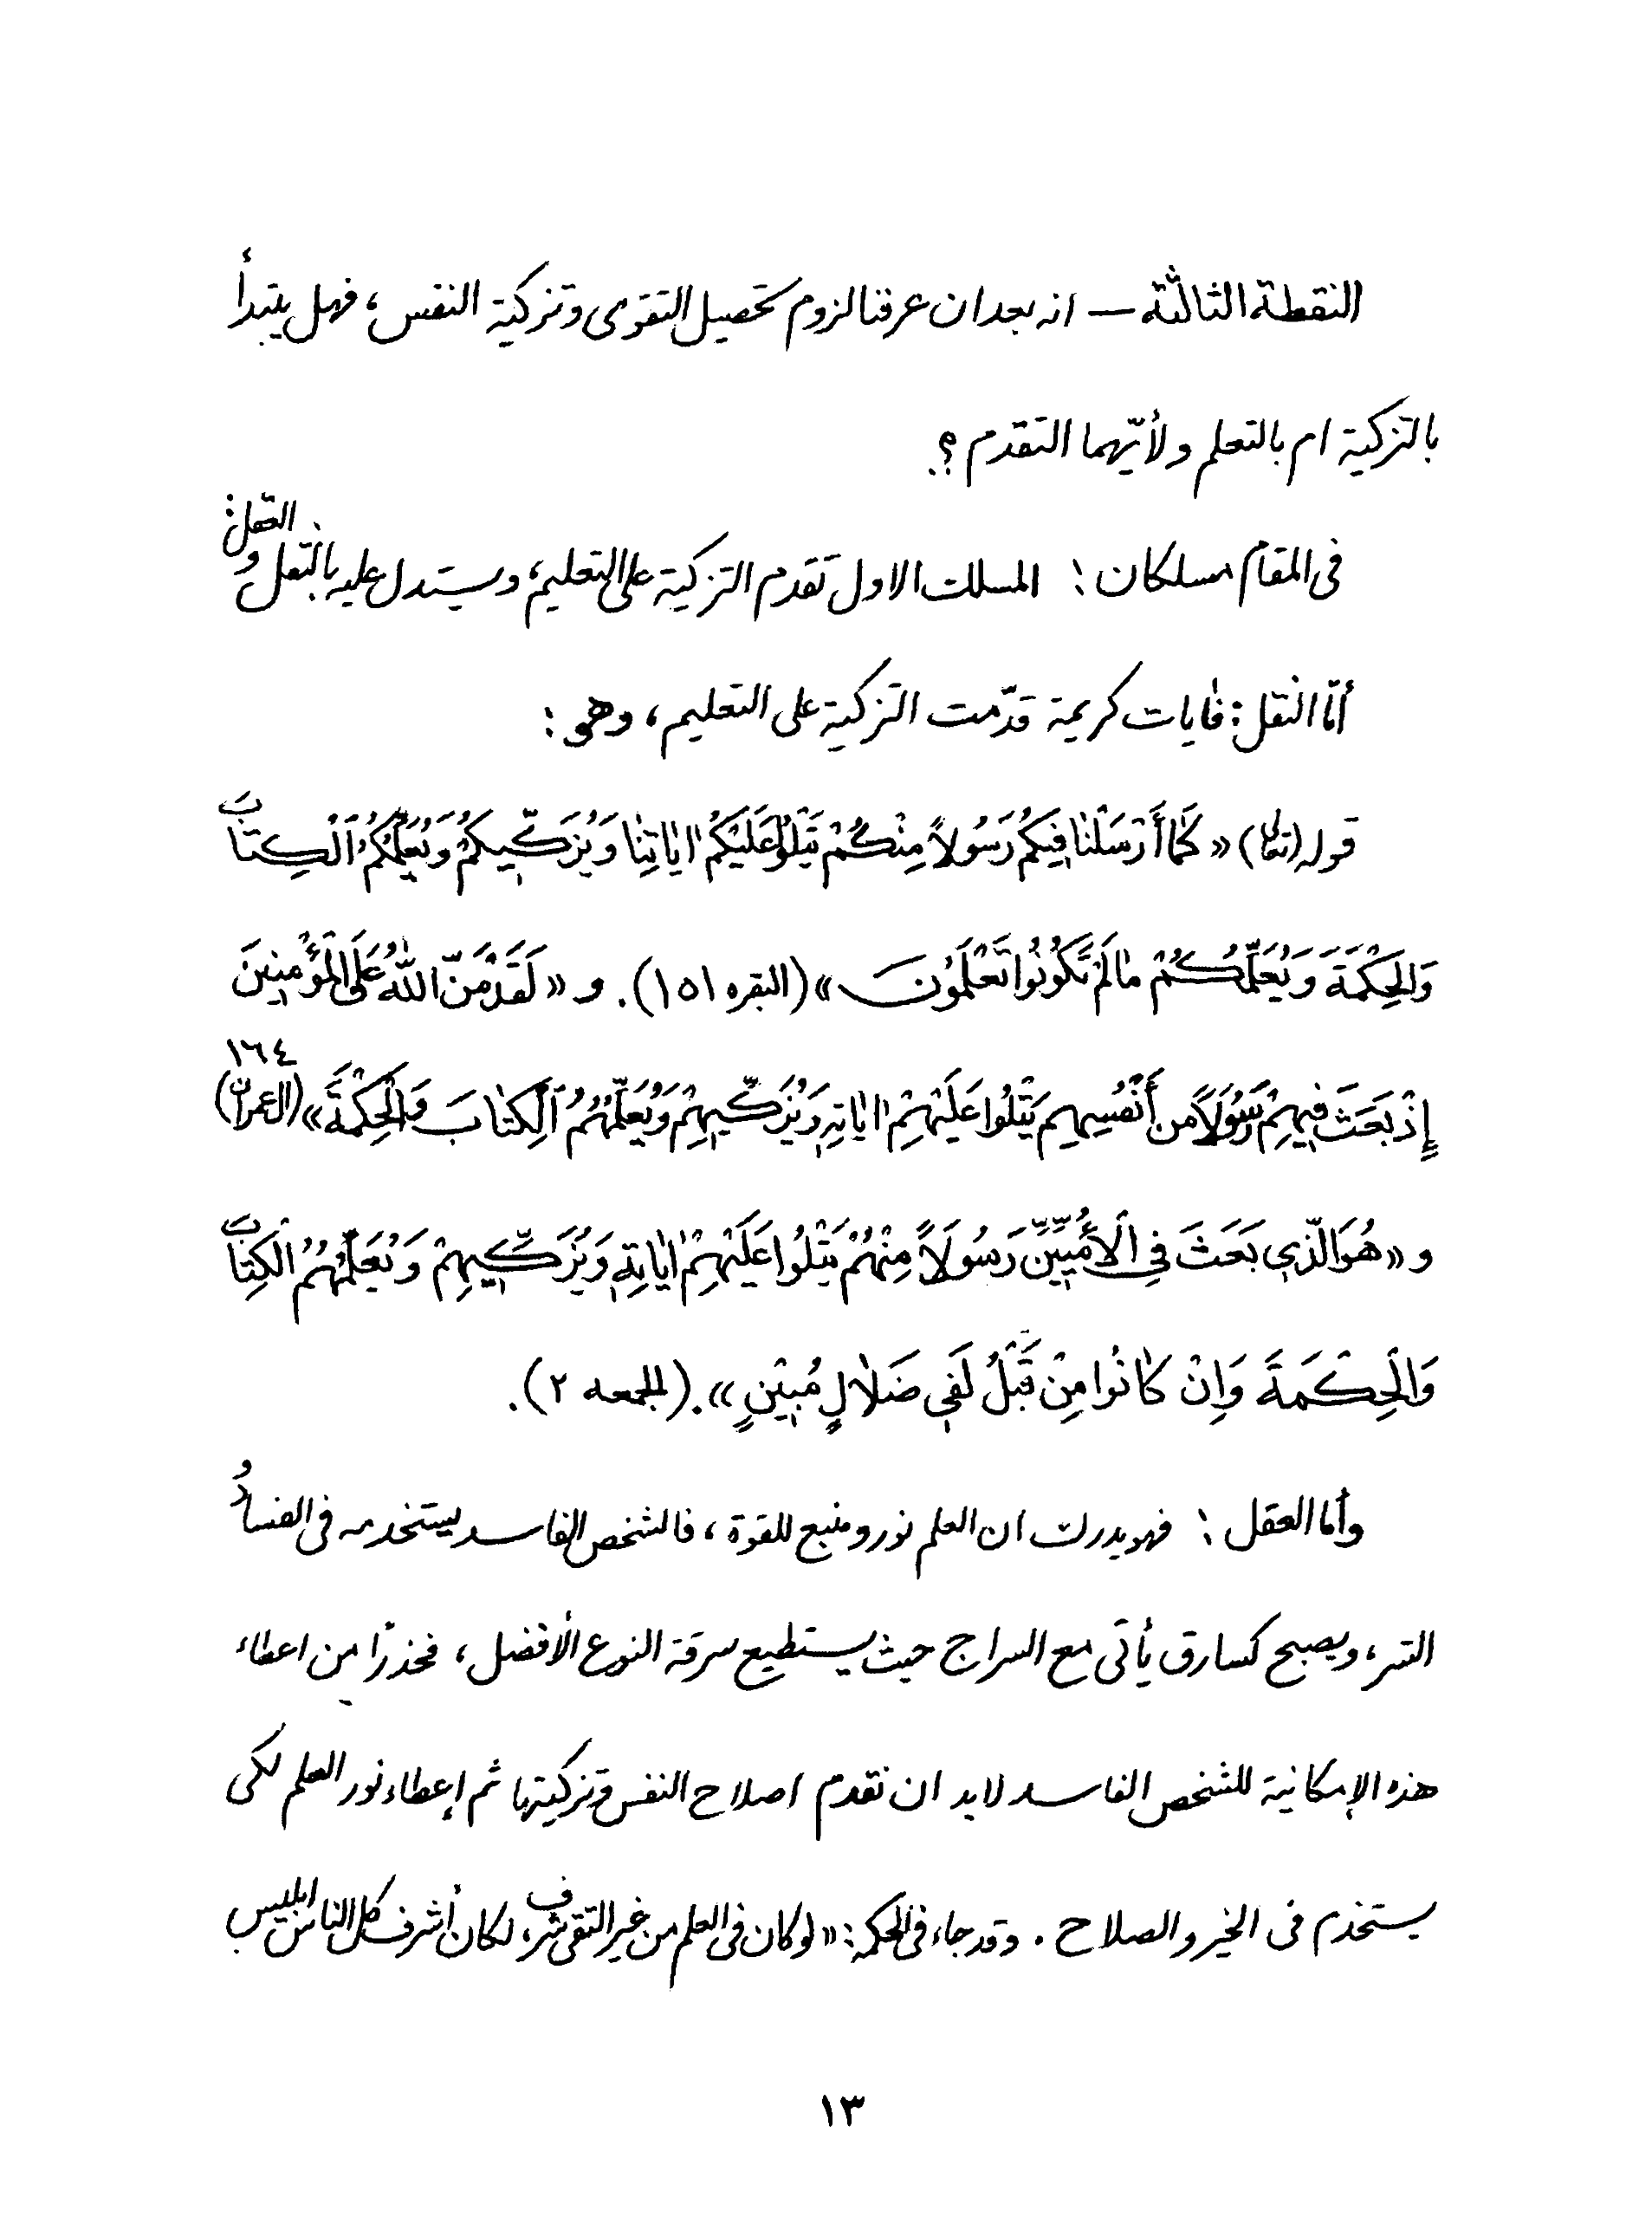 النقطة الثالثة — انه بعد ان عرفنا لزوم تحصيل التقوى وتزكية النفس، فهل يبتدأ
بالتزكية ام بالتعلم ولأيّهما التقدم ؟.
فى المقام مسلكان : المسلك الاول تقدم التزكية على التعليم، ويستدل عليه بالنقل و العقل :
أمّا النقل : فٰايات كريمة قدّمت التزكية على التعليم، وهو :
قوله (تعالى) « كَمٰا أَرْسَلْنٰا فِيكُمْ رَسُولاً مِنْكُمْ يَتْلُوا عَلَيْكُمْ اٰيٰاتِنٰا وَيُزَكّيكُمْ وَيُعَلِّمُكُمُ الْكِتٰابَ
وَالْحِكْمَةَ وَيُعَلِّمُكُمْ مٰا لَمْ تَكُونُوا تَعْلَمُونَ » (البقره ١٥١). و « لَقَدْ مَنَّ اللّٰهُ عَلَى الْمُؤْمِنينَ
إِذْ بَعَثَ فيهِمْ رَسُولاً من أَنْفُسِهِم يَتْلُوا عَلَيْهِمْ اٰيٰاتِهِ وَيُزَكّيهِمْ وَيُعَلِّمُهُمُ الْكِتٰابَ وَالْحِكْمَةَ » (ال عمران ١٦٤)
و « هُوَ الَّذي بَعَثَ فِي الْأُمِّيِّينَ رَسُولاً مِنْهُمْ يَتْلُوا عَلَيْهِمْ اٰيٰاتِهِ وَيُزَكّيهِمْ وَيُعَلِّمُهُمُ الْكِتٰابَ
وَالْحِكْمَةَ وَاِنْ كٰانُوا مِنْ قَبْلُ لَفي ضَلٰالٍ مُبينٍ ». (الجمعه ٢).
وأما العقل : فهو يدرك ان العلم نور ومنبع للقوة، فالشخص الفاسد يستخدمه فى الفساد و
الشر، ويصبح كسارق يأتى مع السراج حيث يستطيع سرقة النوع الأفضل، فحذرًا من اعطاء
هذه الإمكانية للشخص الفاسد لابد ان نقدم اصلاح النفس وتزكيتها ثم إعطاء نور العلم لكى
يستخدم فى الخير والصلاح . وقد جاء فى الحكمة : « لو كان فى العلم من غير التقى شرف، لكان أشرف كل الناس ابليس
١٣